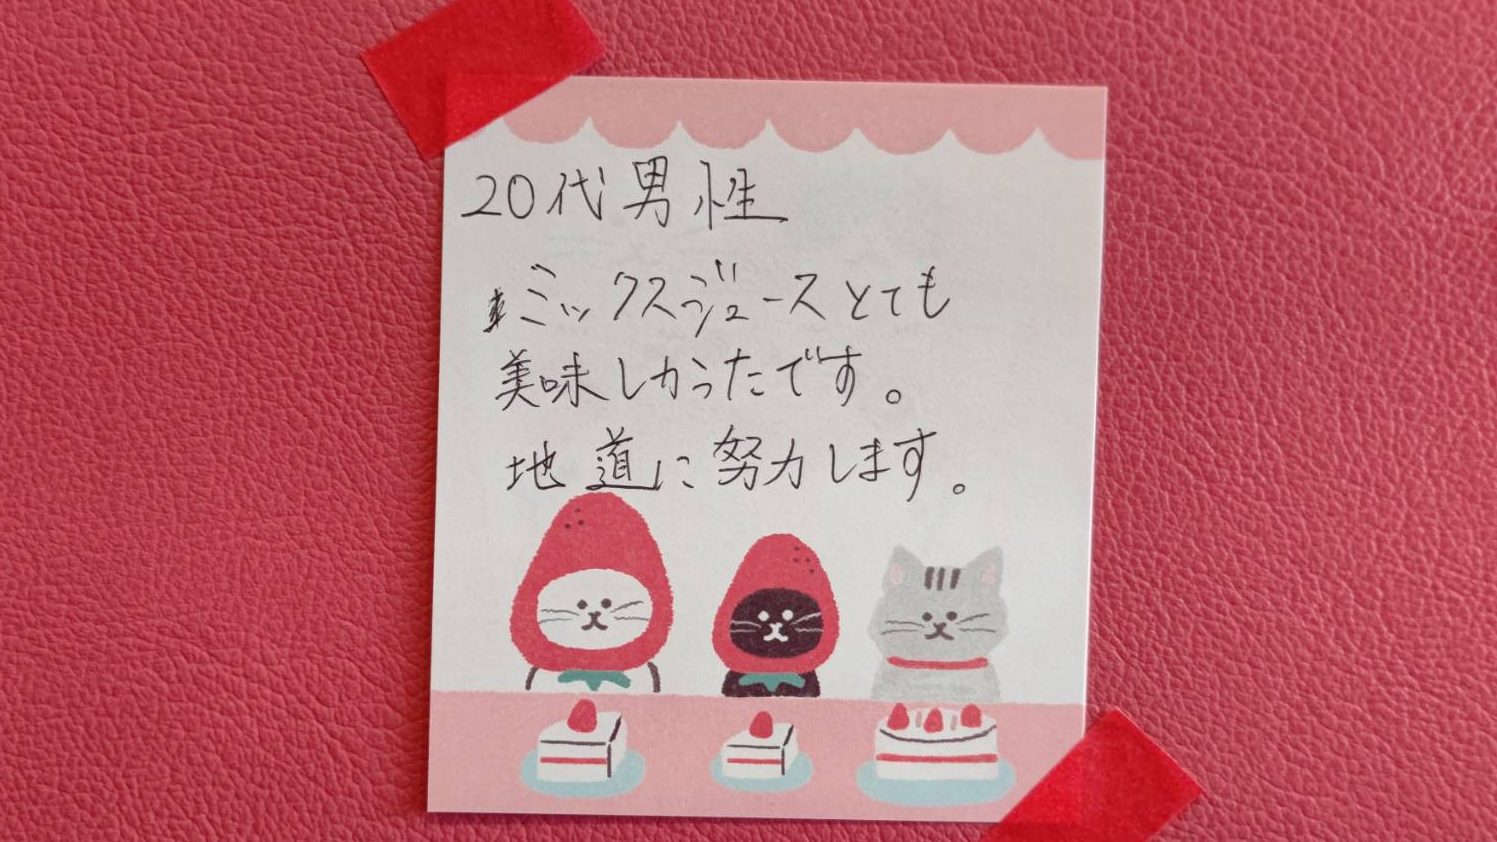 20代男性
ミックスジュースとても
美味しかったです。
地道に努力します。